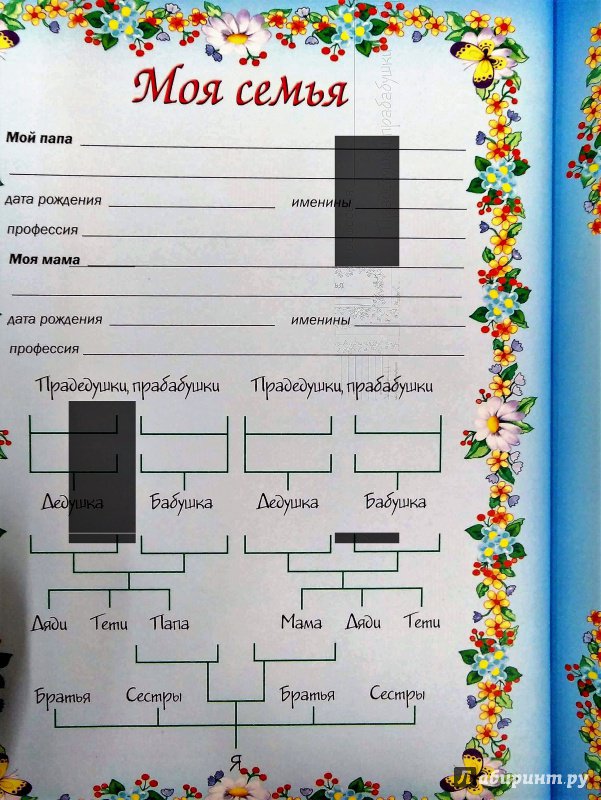 Моя семья
Мой папа
дата рождения именины
профессия
Моя мама
дата рождения именины
профессия
Прадедушки, прабабушки Прадедушки, прабабушки
Дедушка Бабушка Дедушка Бабушка
Дяди Тети Папа Мама Дяди Тети
Братья Сестры Братья Сестры
Я
Лабиринт.ру